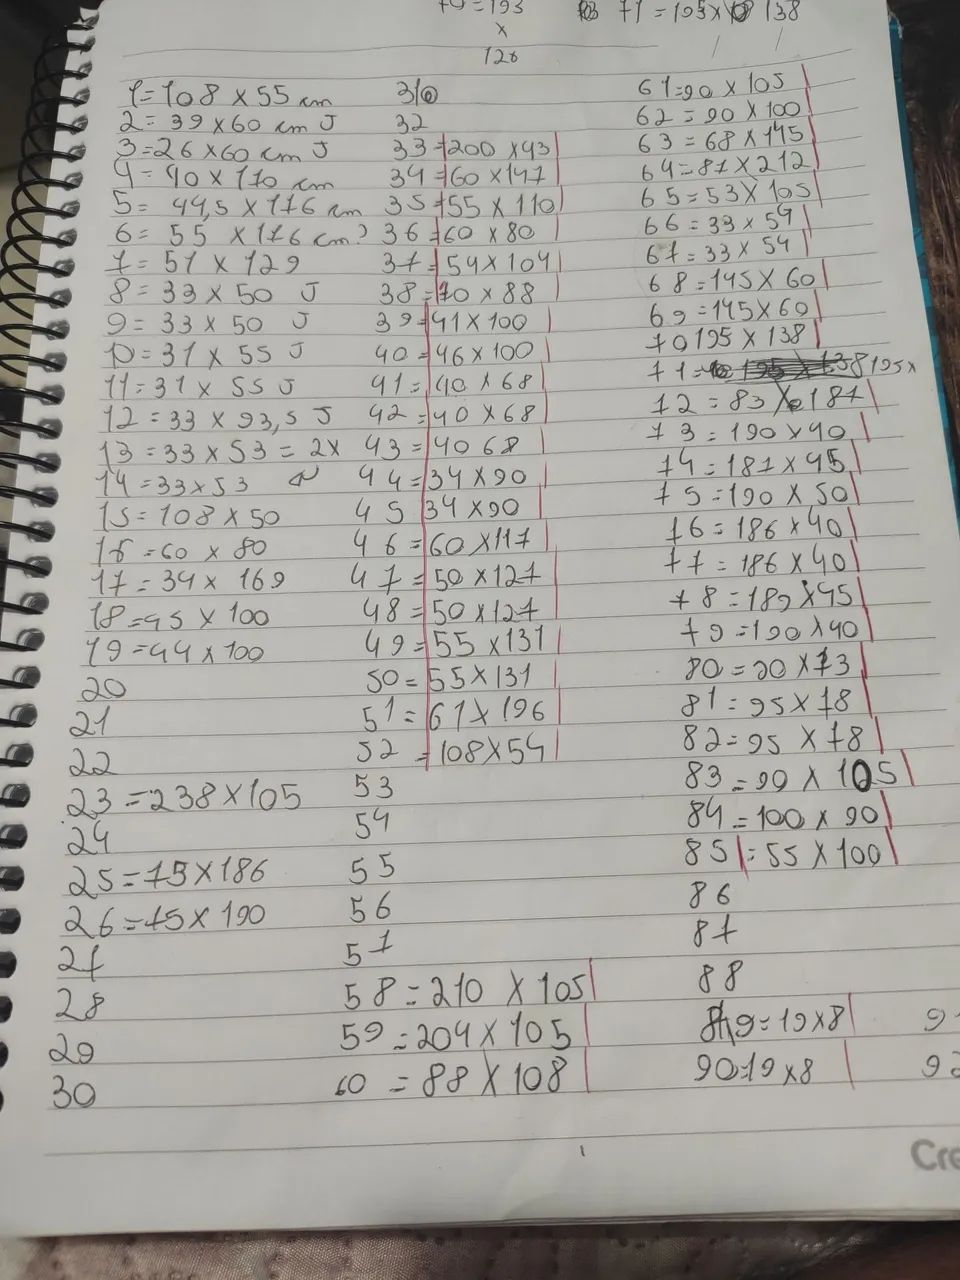 70=193
x
126
71=195x 138
1=108 x 55 cm
2=39x60 cm J
3=26x60 cm J
4=40x110 cm
5= 44,5 x 116 cm
6= 55 x 116 cm?
7= 51 x 129
8= 33 x 50 J
9= 33 x 50 J
10= 31 x 55 J
11=31 x 55 J
12=33 x 93,5 J
13=33 x 53 = 2x
14=33x53
15=108 x 50
16=60 x 80
17=34x 169
18=45 x 100
19=44x100
20
21
22
23=238x105
24
25=75x186
26=75x190
27
28
29
30
31
32
33=200 x43
34=60x147
35=55 x 110
36=60 x 80
37=54x104
38=70 x 88
39=41x100
40=46 x 100
41=40 x 68
42=40 x 68
43=40 68
44=34x90
45 34x90
46=60x117
47=50x127
48=50x127
49=55x131
50=55x131
51=61x196
52=108x54
53
54
55
56
57
58=210 x 105
59=204x105
60=88x108
61=90 x 105
62=90 x 100
63=68 x 145
64=81x212
65=53x105
66=33 x 54
67=33 x 54
68=145x60
69=145x60
70 195 x 138
71= 195x
72=83x 187
73=190x40
74=181x45
75=190x50
76=186x40
77=186x40
78=189x45
79=190x40
80=90x73
81=95x78
82=95x78
83=90x105
84=100x90
85=55x100
86
87
88
89=19x8
90=19x8
92
Cre